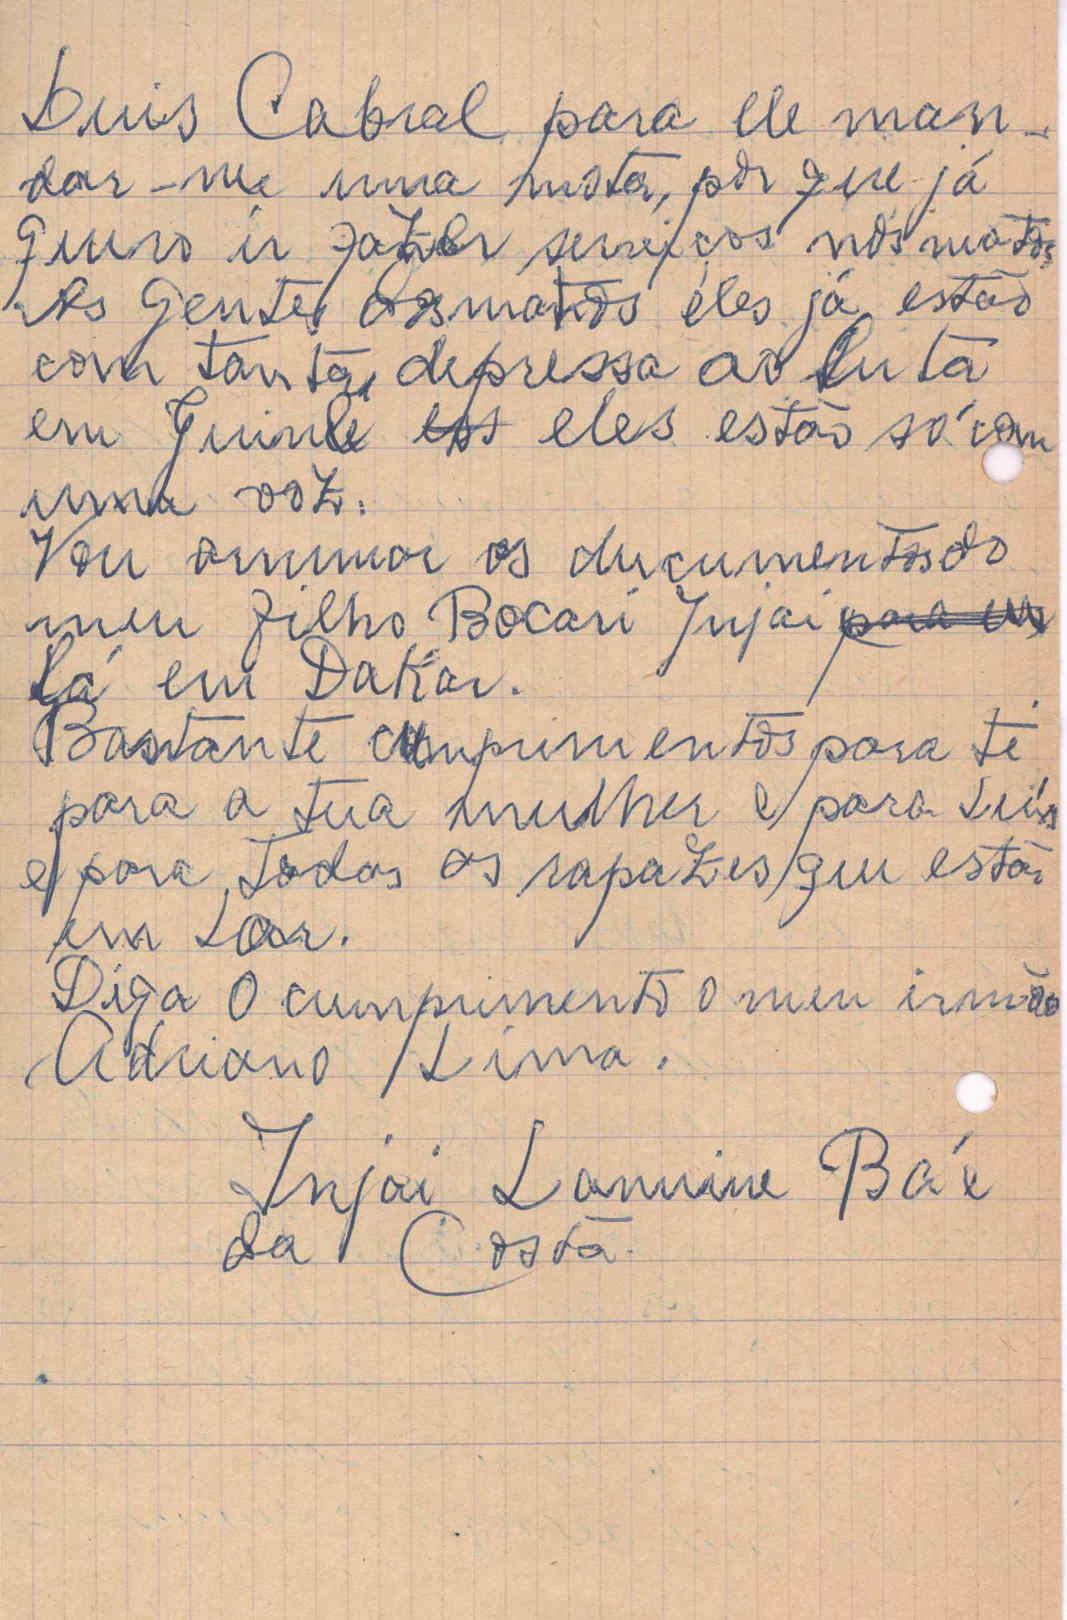 Luis Cabral para ele man-
dar-me uma nota, por que já
quero ir fazer serviços nos matos,
As gentes dos matos eles já estão
com tanta, depressa ao luta
em Guiné eles estão só com
uma voz.
Vou arrumar os documentos do
meu filho Bocari Injai
lá em Dakar.
Bastante cumprimentos para ti
para a tua mulher e para Luís
e para todos os rapazes que estão
em Lar.
Diga o cumprimento o meu irmão
Adriano Lima.
Injai Lamine Báe
da Costa